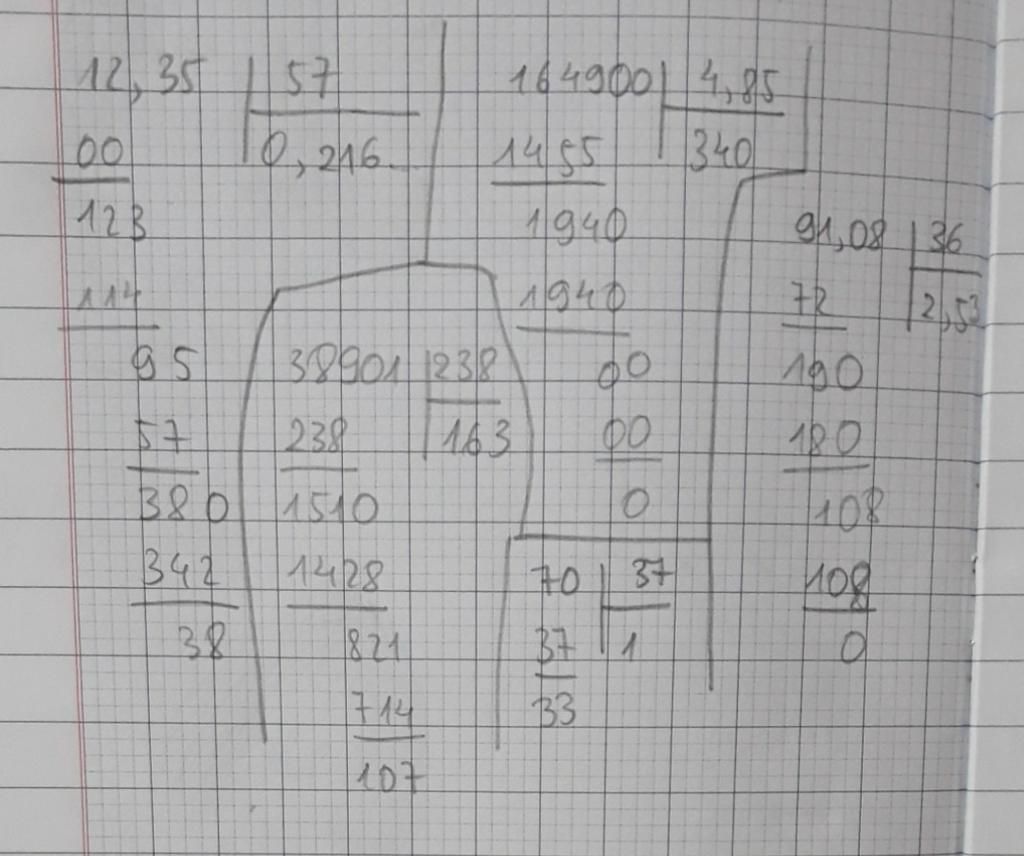 12,35 57
00 0,216..
123
114
95
57
380
342
38
164900 4,85
1455 340
1940
1940
00
00
0
91,08 36
72 2,53
190
180
108
108
0
38901 238
238 163
1510
1428
821
714
107
70 37
37 1
33